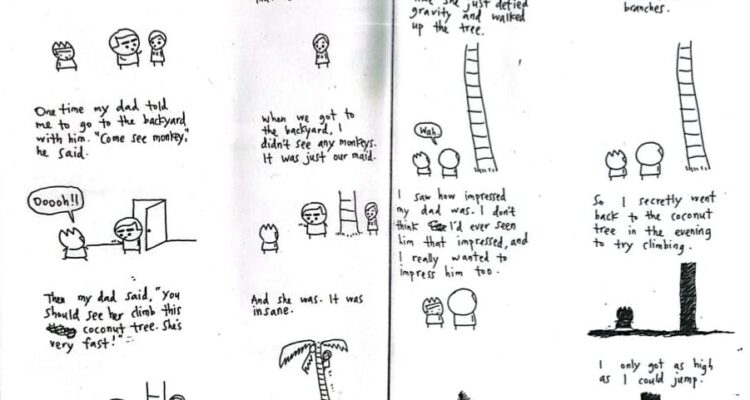 One time my dad told
me to go to the backyard
with him. "Come see monkey,"
he said.
When we got to
the backyard, I
didn't see any monkeys.
It was just our maid.
Ooooh!!
Then my dad said, "You
should see her climb this
coconut tree. She's
very fast!"
And she was. It was
insane.
she just defied
gravity and walked
up the tree.
branches.
Wah.
I saw how impressed
my dad was. I don't
think I'd ever seen
him that impressed, and
I really wanted to
impress him too.
So I secretly went
back to the coconut
tree in the evening
to try climbing.
I only got as high
as I could jump.